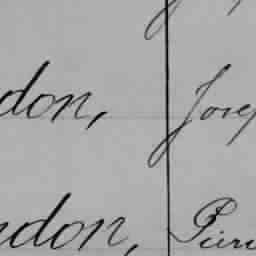 don, Josep
ndon, Pierr